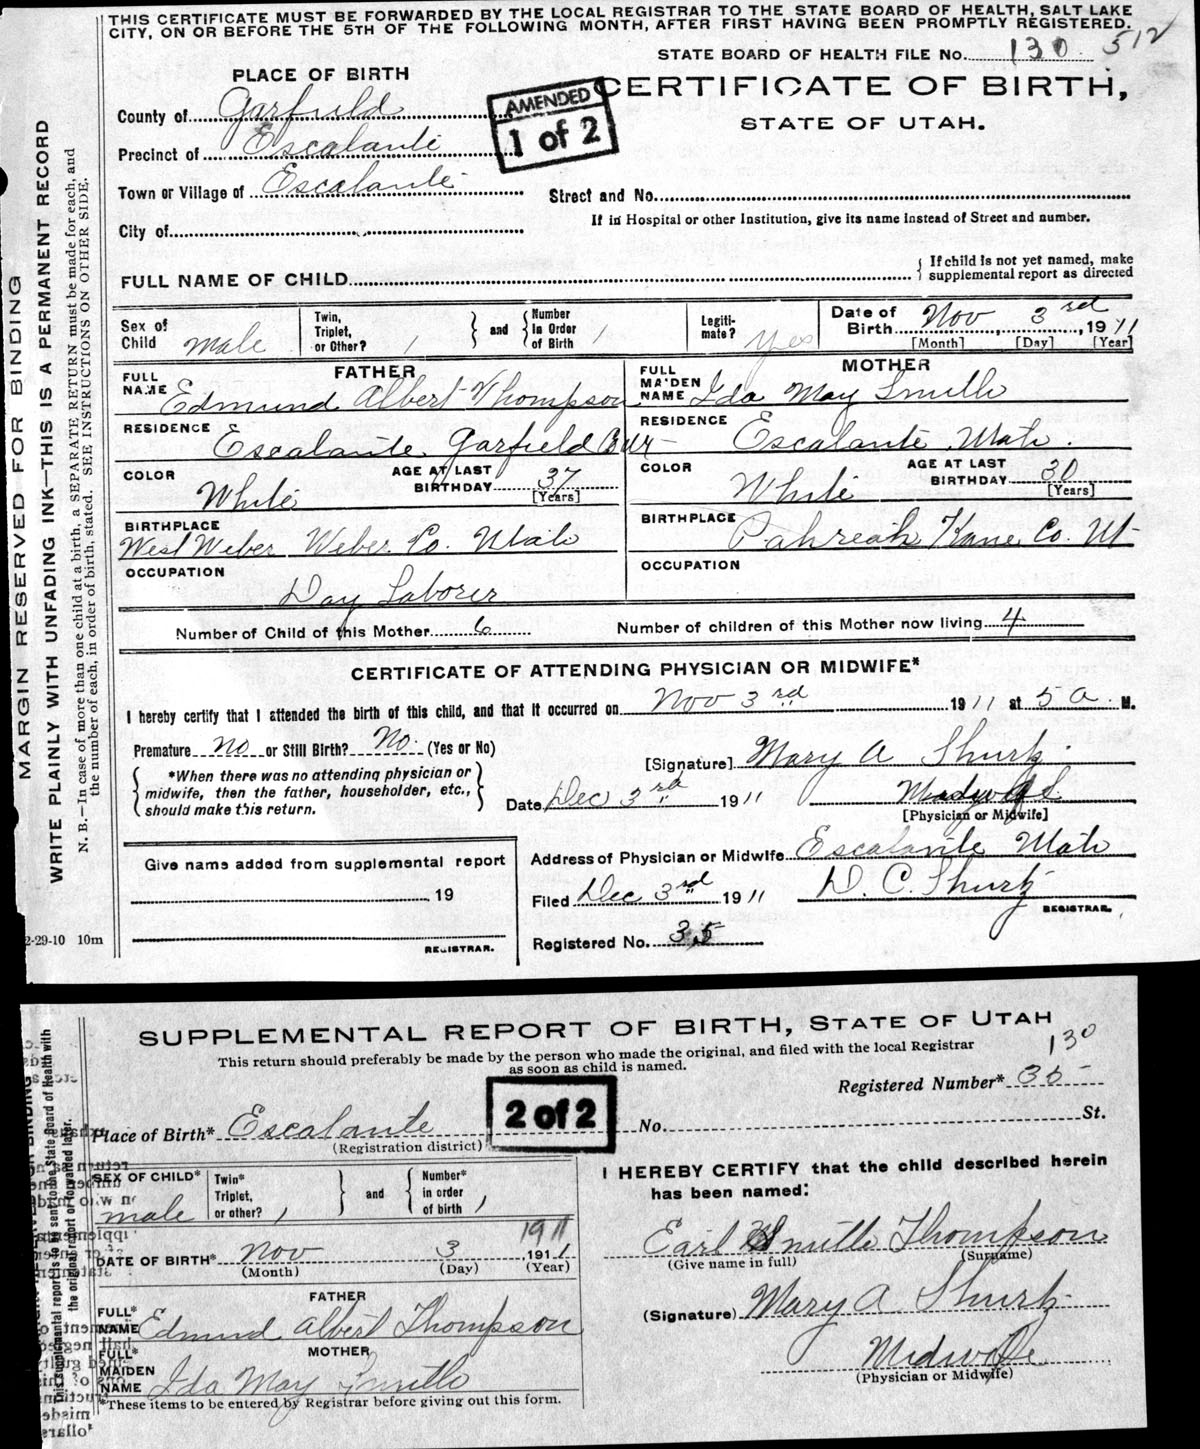 THIS CERTIFICATE MUST BE FORWARDED BY THE LOCAL REGISTRAR TO THE STATE BOARD OF HEALTH, SALT LAKE
CITY, ON OR BEFORE THE 5TH OF THE FOLLOWING MONTH, AFTER FIRST HAVING BEEN PROMPTLY REGISTERED.
512
STATE BOARD OF HEALTH FILE No. 130
PLACE OF BIRTH
CERTIFICATE OF BIRTH,
STATE OF UTAH.
AMENDED
1 of 2
County of Garfield
Precinct of Escalante
Town or Village of Escalante
Street and No.
If in Hospital or other Institution, give its name instead of Street and number.
City of
FULL NAME OF CHILD
If child is not yet named, make
supplemental report as directed
Sex of Child male
Twin, Triplet, or Other? 1 and Number in Order of Birth 1
Legitimate? Yes
Date of Birth Nov 3rd, 1911
[Month] [Day] [Year]
FATHER
FULL NAME Edmund Albert Thompson
RESIDENCE Escalante Garfield
COLOR White
AGE AT LAST BIRTHDAY 37
[Years]
BIRTHPLACE West Weber Weber Co. Utah
OCCUPATION Day Laborer
MOTHER
FULL MAIDEN NAME Ida May Smith
RESIDENCE Escalante Utah.
COLOR White
AGE AT LAST BIRTHDAY 30
[Years]
BIRTHPLACE Pahreah Kane Co. Ut
OCCUPATION
Number of Child of this Mother 6
Number of children of this Mother now living 4
CERTIFICATE OF ATTENDING PHYSICIAN OR MIDWIFE*
I hereby certify that I attended the birth of this child, and that it occurred on Nov 3rd 1911 at 5 a. M.
Premature no or Still Birth? No. (Yes or No)
*When there was no attending physician or
midwife, then the father, householder, etc.,
should make this return.
[Signature] Mary A Shurtz
Date Dec 3rd 1911
Midwife
[Physician or Midwife]
Give name added from supplemental report
19
REGISTRAR.
Address of Physician or Midwife Escalante Utah
Filed Dec 3rd 1911 D. C. Shurtz
REGISTRAR.
Registered No. 35
MARGIN RESERVED FOR BINDING
WRITE PLAINLY WITH UNFADING INK—THIS IS A PERMANENT RECORD
N. B.—In case of more than one child at a birth, a SEPARATE RETURN must be made for each, and
the number of each, in order of birth, stated. SEE INSTRUCTIONS ON OTHER SIDE.
2-29-10 10m
SUPPLEMENTAL REPORT OF BIRTH, STATE OF UTAH
This return should preferably be made by the person who made the original, and filed with the local Registrar
as soon as child is named.
130
Registered Number* 35
2 of 2
Place of Birth* Escalante
(Registration district)
No. St.
SEX OF CHILD* male
Twin* Triplet, or other? 1 and Number* in order of birth 1
1911
DATE OF BIRTH* Nov 3 1911
(Month) (Day) (Year)
FATHER
FULL* NAME Edmund Albert Thompson
MOTHER
FULL* MAIDEN NAME Ida May Smith
*These items to be entered by Registrar before giving out this form.
I HEREBY CERTIFY that the child described herein
has been named:
Earl Smith Thompson
(Give name in full) (Surname)
(Signature) Mary A. Shurtz
Midwife
(Physician or Midwife)
This supplemental report is to be sent to the State Board of Health with
the original report or forwarded later.